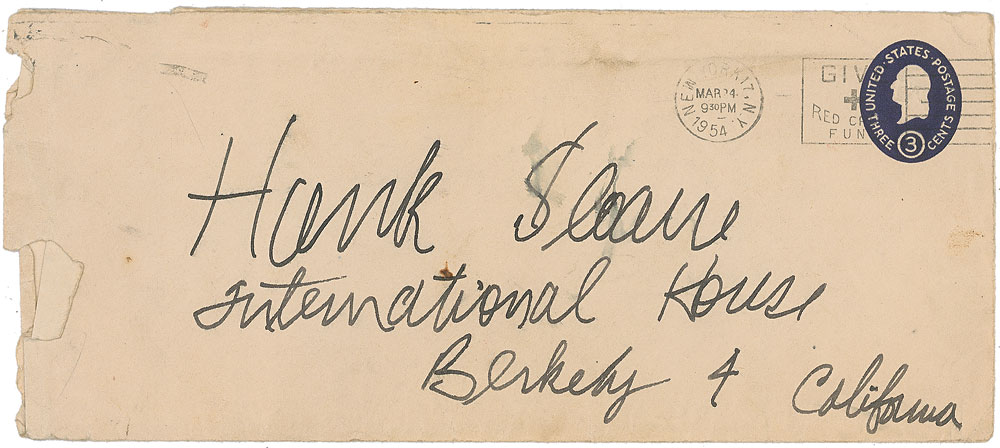 NEW YORK 17. N.Y.
MAR 24
9 30 PM
1954
GIV
RED CR
FUN
UNITED STATES POSTAGE
THREE 3 CENTS
Hank Sloane
International House
Berkeley 4 California